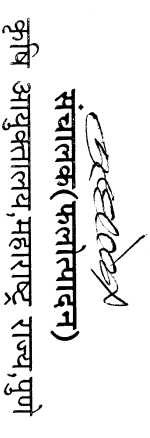 संचालक(फलोत्पादन)
कृषि आयुक्तालय,महाराष्ट्र राज्य,पुणे